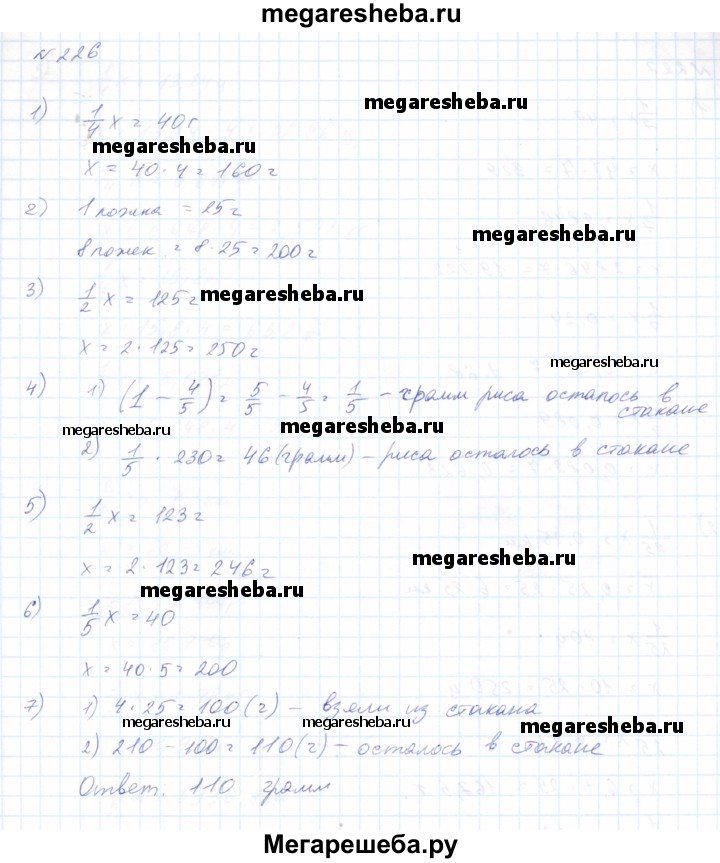 megaresheba.ru
№226
1) 1/4 x = 40г
megaresheba.ru
megaresheba.ru
x = 40·4 = 160г
2) 1 ложка = 25г
megaresheba.ru
8 ложек = 8·25 = 200г
3) 1/2 x = 125г
megaresheba.ru
x = 2·125 = 250г
megaresheba.ru
4) 1) (1 - 4/5) = 5/5 - 4/5 = 1/5 - грамм риса осталось в
стакане
megaresheba.ru
megaresheba.ru
2) 1/5 · 230 = 46 (грамм) - риса осталось в стакане
5) 1/2 x = 123г
megaresheba.ru
x = 2·123 = 246г
megaresheba.ru
6) 1/5 x = 40
x = 40·5 = 200
7) 1) 4·25 = 100 (г) - взяли из стакана
megaresheba.ru
megaresheba.ru
megaresheba.ru
2) 210 - 100 = 110 (г) - осталось в стакане
Ответ. 110 грамм
Мегарешеба.ру